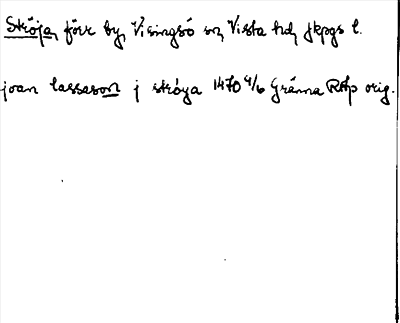 Ströja, förr by, Visingsö sn, Vista hd, Jkpgs l.
joan lassason j ströya 1470 4/6 Gränna RAp orig.